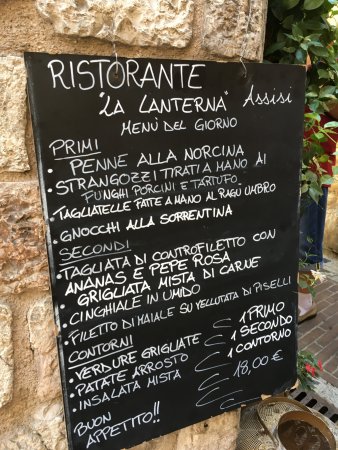 RISTORANTE
"LA LANTERNA" Assisi
MENÙ DEL GIORNO
PRIMI
• PENNE ALLA NORCINA
• STRANGOZZI TIRATI A MANO AI
FUNGHI PORCINI E TARTUFO
• TAGLIATELLE FATTE A MANO AL RAGÙ UMBRO
• GNOCCHI ALLA SORRENTINA
SECONDI
• TAGLIATA DI CONTROFILETTO CON
ANANAS E PEPE ROSA
• GRIGLIATA MISTA DI CARNE
• CINGHIALE IN UMIDO
• FILETTO DI MAIALE SU VELLUTATA DI PISELLI
CONTORNI
• VERDURE GRIGLIATE
• PATATE ARROSTO
• INSALATA MISTA
1 PRIMO
1 SECONDO
1 CONTORNO
18,00 €
BUON
APPETITO!!